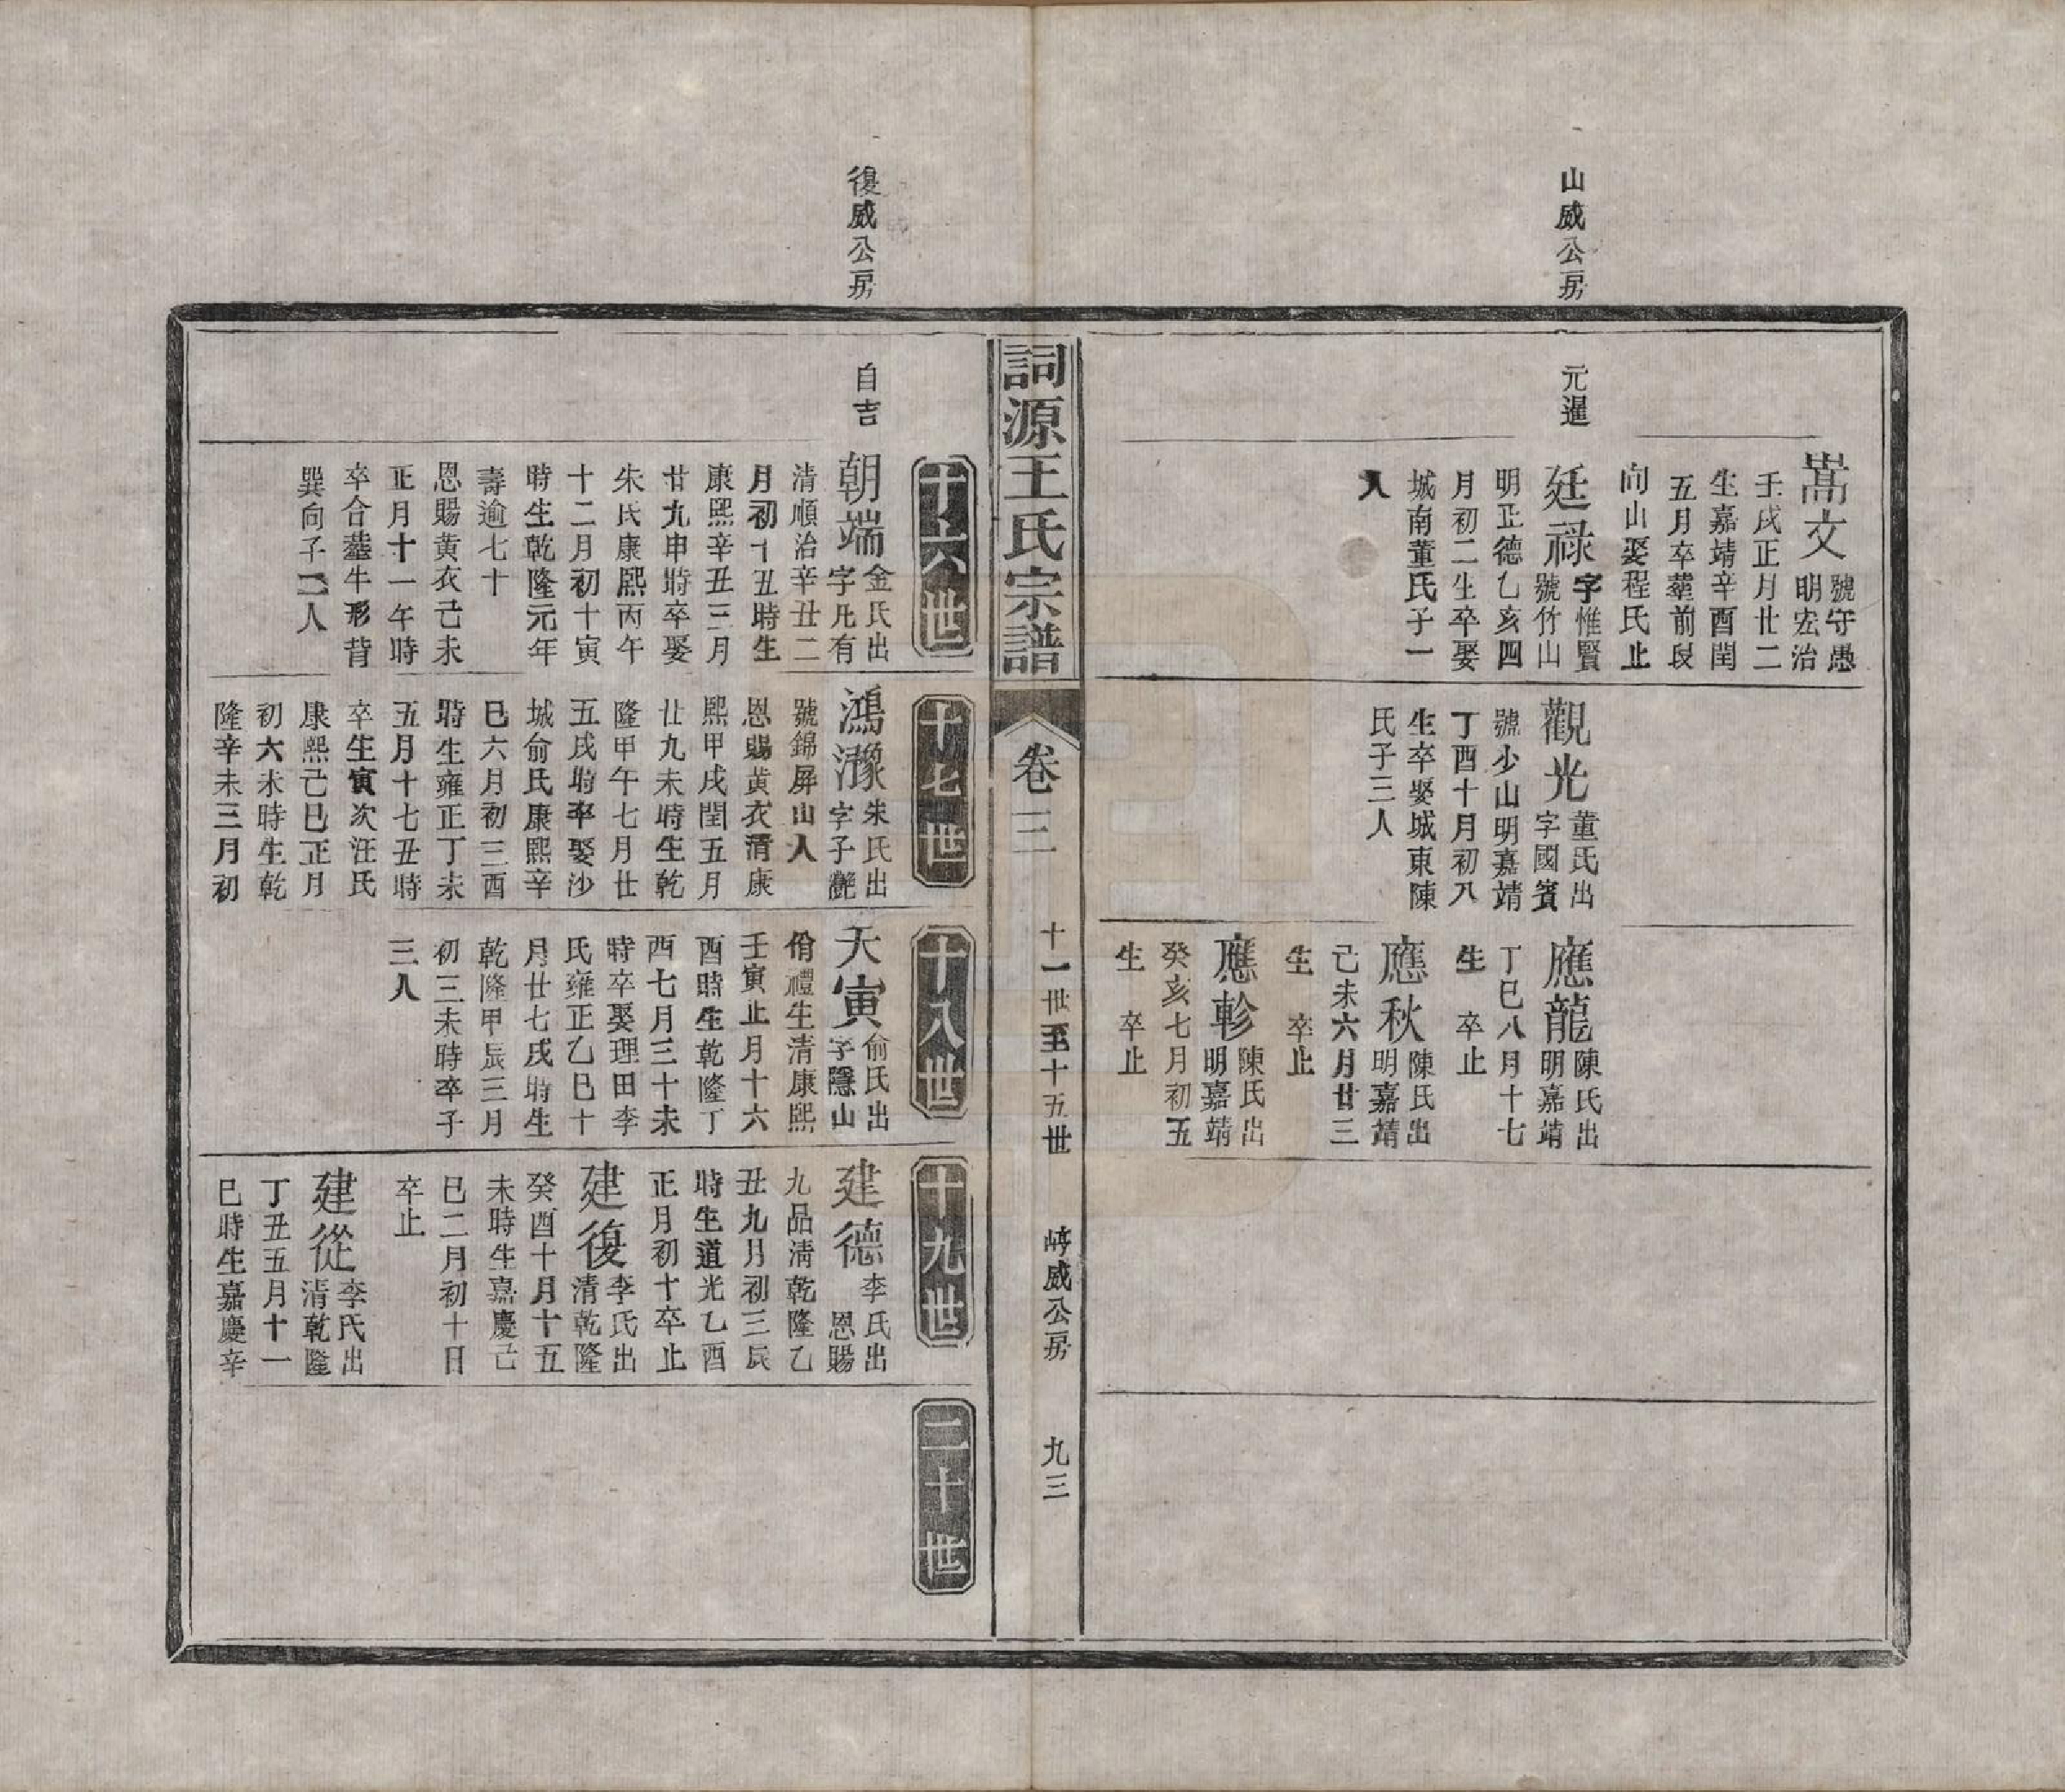 山威公房
元暹
嵩文
號守愚
明宏治
壬戌正月廿二
生嘉靖辛酉閏
五月卒葬前段
向山娶程氏止
廷祿
字惟賢
號竹山
明正德乙亥四
月初二生卒娶
城南董氏子一
人
觀光
董氏出
字國賓
號少山明嘉靖
丁酉十月初八
生卒娶城東陳
氏子三人
應龍
陳氏出
明嘉靖
丁巳八月十七
生 卒止
應秋
陳氏出
明嘉靖
己未六月廿三
生 卒止
應軫
陳氏出
明嘉靖
癸亥七月初五
生 卒止
詞源王氏宗譜
卷三
十一世至十五世
崞威公房
九三
復威公房
自吉
十六世
朝端
金氏出
字凡有
清順治辛丑二
月初十丑時生
康熙辛丑三月
廿九申時卒娶
朱氏康熙丙午
十二月初十寅
時生乾隆元年
壽逾七十
恩賜黄衣己未
正月十一午時
卒合塟牛形背
巽向子二人
十七世
鴻瀿
朱氏出
字子艷
號錦屏山人
恩賜黄衣清康
熙甲戌閏五月
廿九未時生乾
隆甲午七月廿
五戌時卒娶沙
城俞氏康熙辛
巳六月初三酉
時生雍正丁未
五月十七丑時
卒生寅次汪氏
康熙己巳正月
初六未時生乾
隆辛未三月初
十八世
天寅
俞氏出
字隱山
佾禮生清康熙
壬寅正月十六
酉時生乾隆丁
酉七月三十未
時卒娶理田李
氏雍正乙巳十
月廿七戌時生
乾隆甲辰三月
初三未時卒子
三人
十九世
建德
李氏出
恩賜
九品清乾隆乙
丑九月初三辰
時生道光乙酉
正月初十卒止
建復
李氏出
清乾隆
癸酉十月十五
未時生嘉慶己
巳二月初十日
卒止
建從
李氏出
清乾隆
丁丑五月十一
巳時生嘉慶辛
二十世